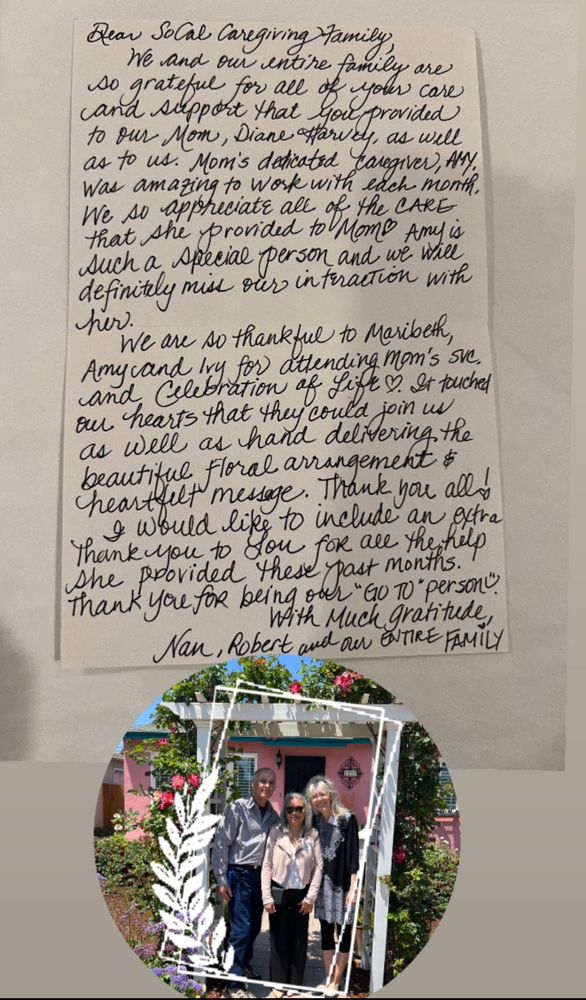 Dear SoCal Caregiving Family,
We and our entire family are
so grateful for all of your care
and support that you provided
to our Mom, Diane Harvey, as well
as to us. Mom's dedicated caregiver, AMY,
was amazing to work with each month.
We so appreciate all of the CARE
that she provided to Mom♡ Amy is
such a special person and we will
definitely miss our interaction with
her.
We are so thankful to Maribeth,
Amy and Ivy for attending Mom's svc.
and Celebration of Life♡. It touched
our hearts that they could join us
as well as hand delivering the
beautiful floral arrangement &
heartfelt message. Thank you all!
I would like to include an extra
Thank you to you for all the help
she provided these past months.
Thank you for being our "GO TO" person☺!
With Much gratitude,
Nan, Robert and our ENTIRE FAMILY